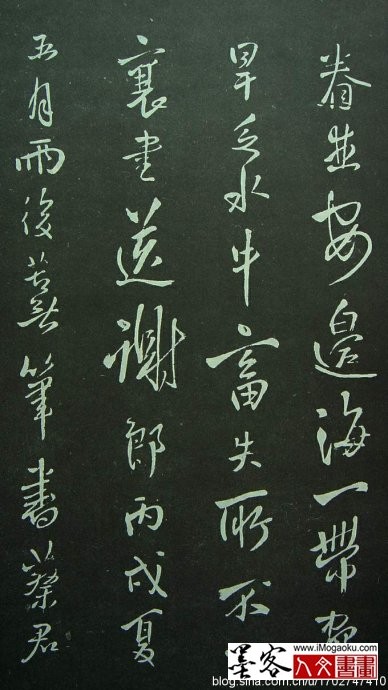 眷並安邊海一帶
旱乏水牛畜失所不
襄書送謝郎丙戌夏
五月雨後苦無筆書蔡君
墨客
www.iMogaoku.com
人文書畫
blog.sina.com.cn/u/1702747410